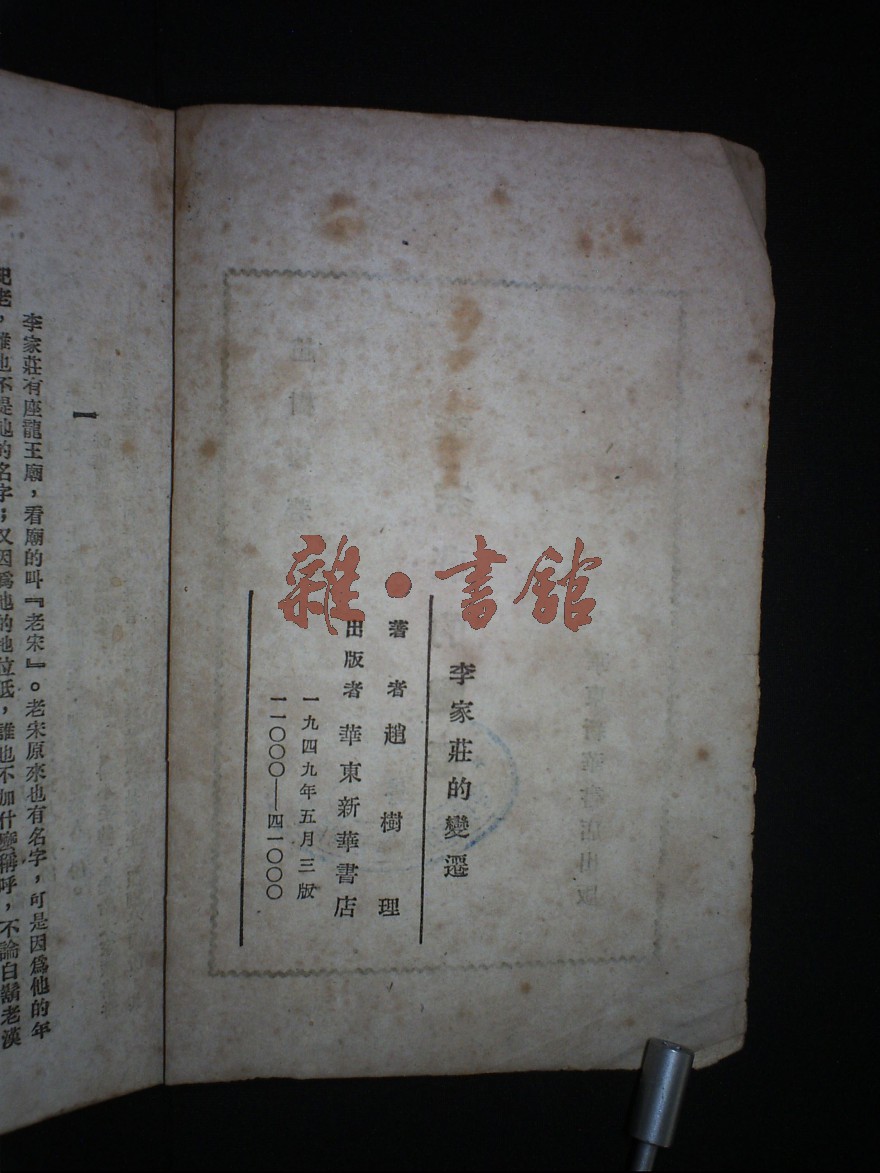 雜·書館
李家莊的變遷
著者 趙樹理
出版者 華東新華書店
一九四九年五月三版
一一〇〇〇—四一〇〇〇
一
李家莊有座龍王廟，看廟的叫『老宋』。老宋原來也有名字，可是因爲他的年
紀老，誰也不是他的名字；又因爲他的地位低，誰也不加什麼稱呼，不論白鬍老漢